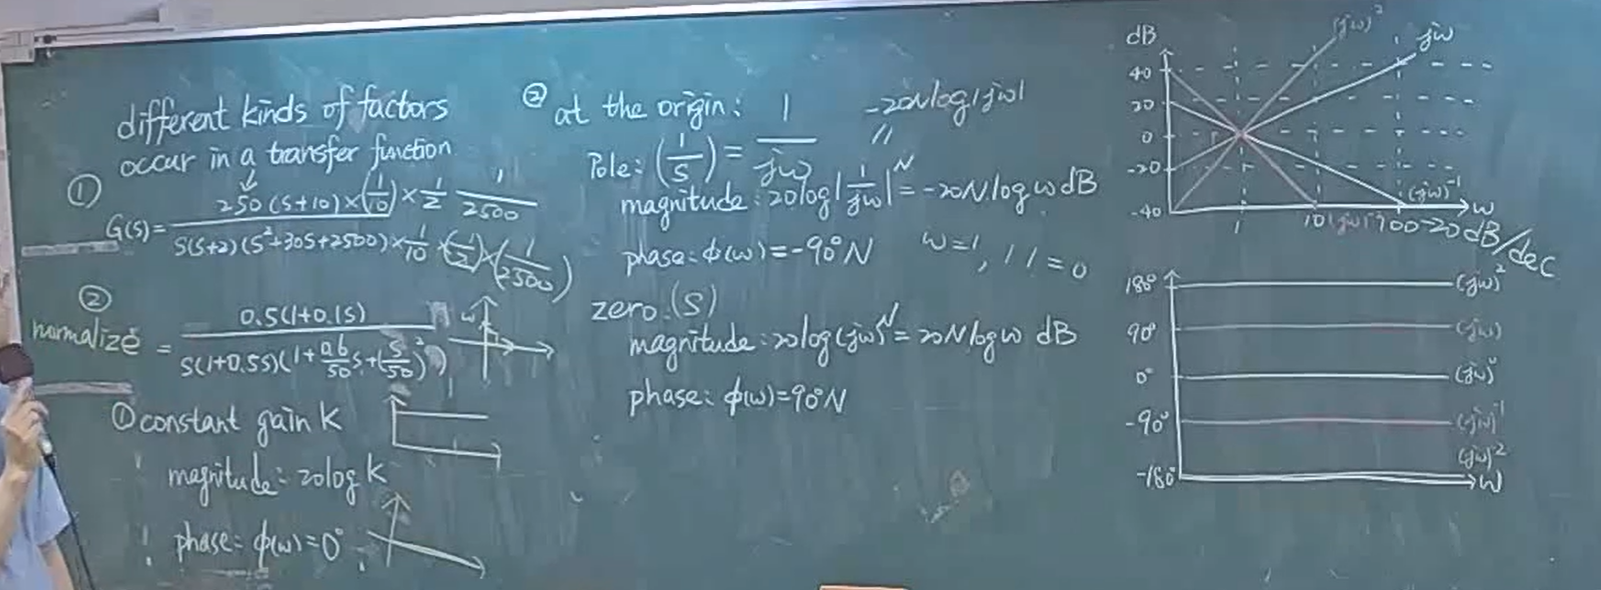 different kinds of factors
occur in a transfer function
①
G(s)= 250(s+10)×(1/10)×1/2 1/2500
s(s+2)(s²+30s+2500)×1/10×(1/2)×(1/2500)
②
normalize = 0.5(1+0.1s)
s(1+0.5s)(1+0.6/50 s+(s/50)²)
w
① constant gain K
magnitude: 20logK
phase: φ(w)=0°
② at the origin:
-20Nlog|jw|
//
Pole: (1/s) = 1/jw
magnitude: 20log|1/jw|^N = -20N log w dB
phase: φ(w)=-90°N
w=1, // =0
zero:(s)
magnitude: 20log(jw)^N = 20N log w dB
phase: φ(w)=90°N
dB
(jw)²
jw
40
20
0
-20
-40
(jw)⁻¹
w
1
10
100
-20dB/dec
180°
(jw)²
90°
(jw)
0°
(jw)⁰
-90°
(jw)⁻¹
-180°
w